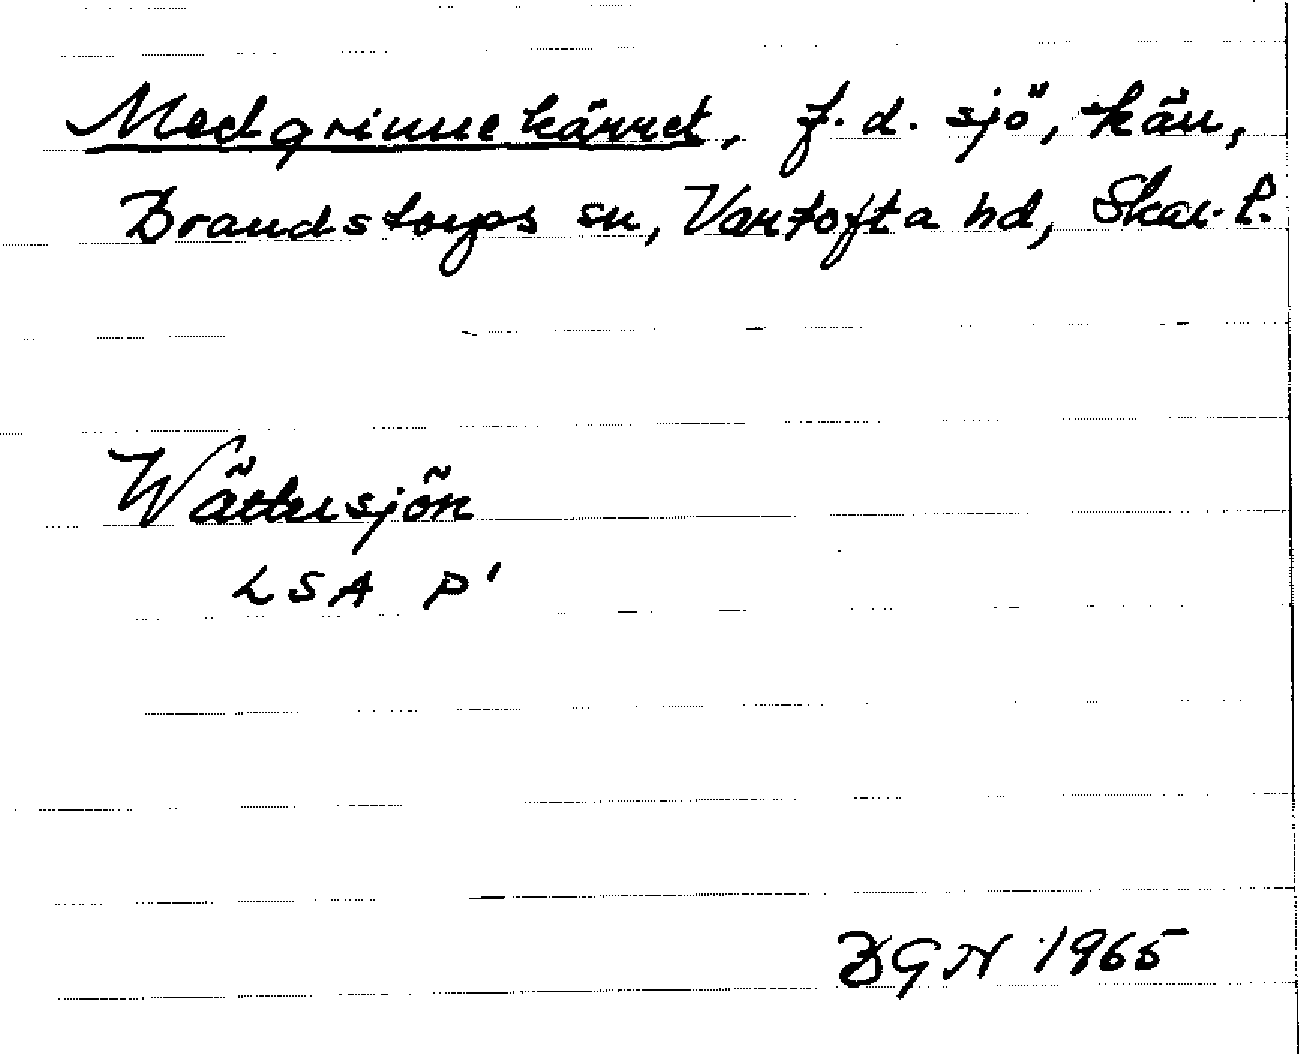 Medgrinnekärret, f.d. sjö, kärr,
Brandstorps sn, Vartofta hd, Skar. l.
Wättersjön
LSA P'
BGN 1965